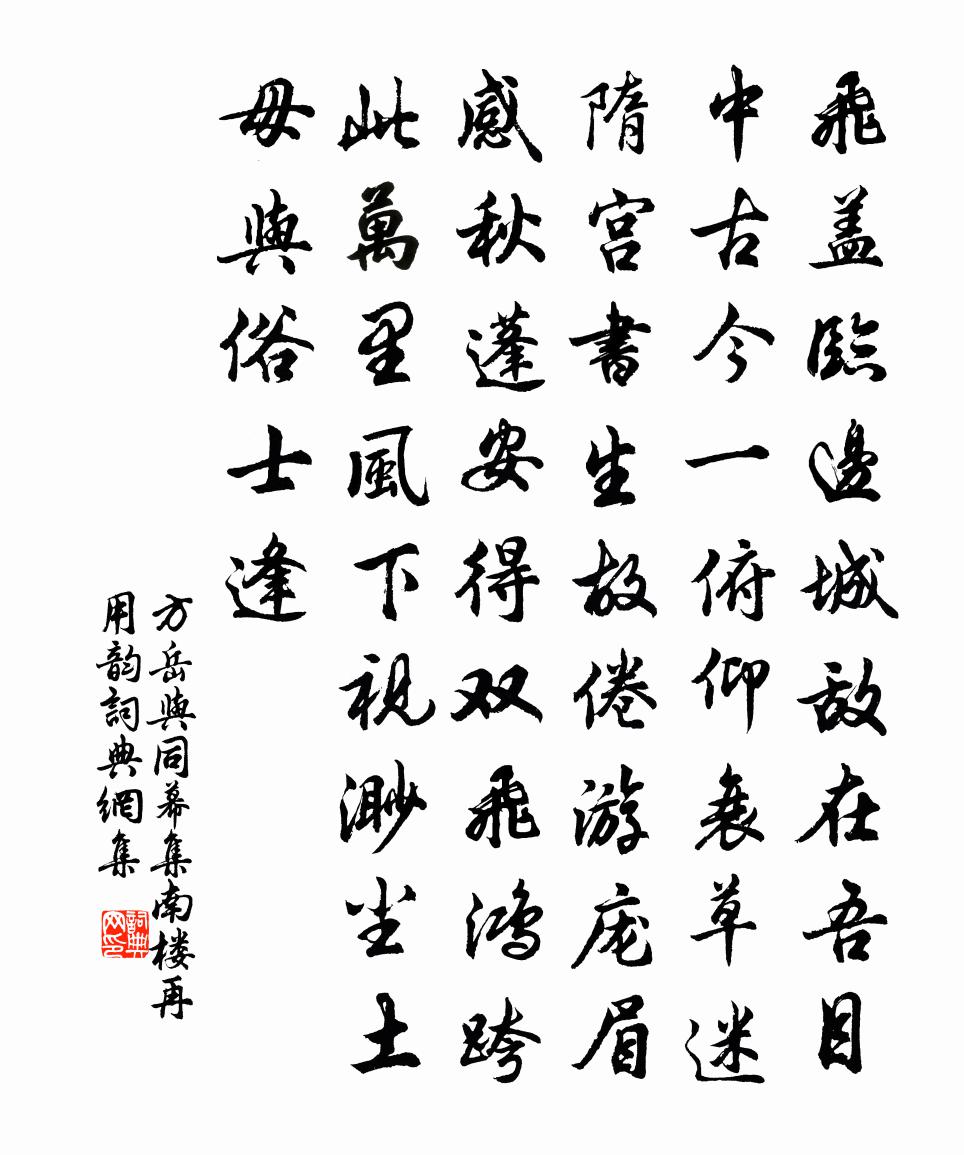 飛盖臨邊城敵在吾目
中古今一俯仰衰草迷
隋宫書生故倦游庬眉
感秋蓬安得双飛鴻跨
此萬里風下視渺尘土
毋與俗士逢
方岳與同幕集南楼再
用韵詞典網集
詞典
网印